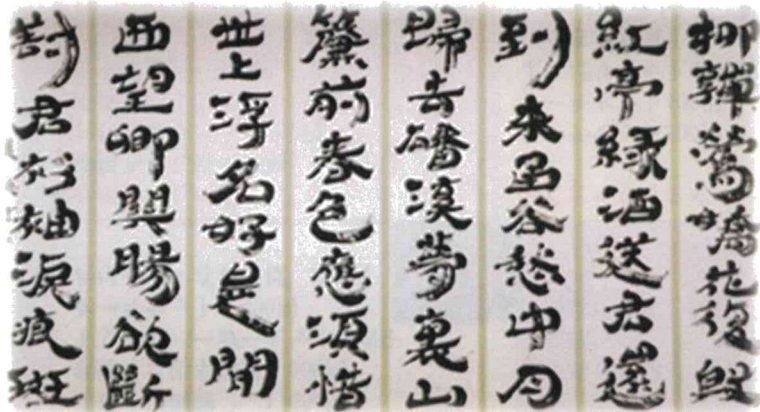 柳嚲鶯嬌花復殷
紅亭綠酒送君還
到來函谷愁中月
歸去磻溪夢裏山
簾前春色應須惜
世上浮名好是閒
西望鄉關腸欲斷
對君衫袖淚痕斑